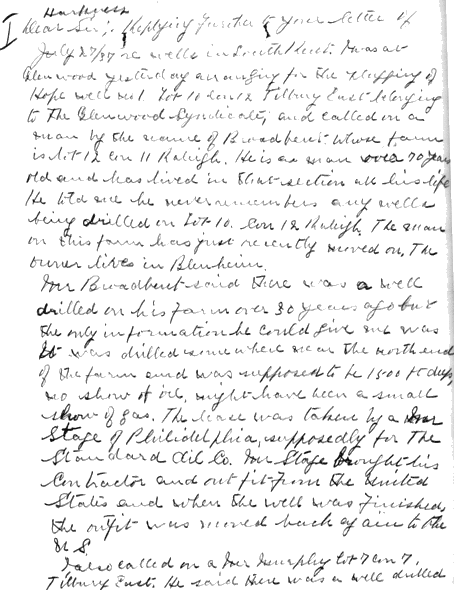 Harkness
Dear Sir:- Replying further to your letter of
July 27/37 re wells in South Kent. I was at
Glenwood yesterday arranging for the plugging of
Hope well no 1. Lot 10 Con 12 Tilbury East belonging
to the Glenwood Syndicate, and called on a
man by the name of Broadbent whose farm
is lot 12 con 11 Raleigh. He is a man over 70 years
old and has lived in that section all his life
He told me he never remembers any wells
being drilled on Lot 10. Con 12 Raleigh. The man
on this farm has just recently moved on, The
owner lives in Blenheim.
Mr Broadbent said there was a well
drilled on his farm over 30 years ago but
the only information he could give me was
It was drilled somewhere near the north end
of the farm and was supposed to be 1500 ft deep,
no show of oil, might have been a small
show of gas. The lease was taken by a Mr
Stage of Philidelphia, supposedly for the
Standard Oil Co. Mr Stage brought his
Contractor and outfit from the United
States and when the well was finished,
the outfit was moved back again to the
U.S.
I also called on a Mr Murphy lot 7 con 7,
Tilbury East. He said there was a well drilled